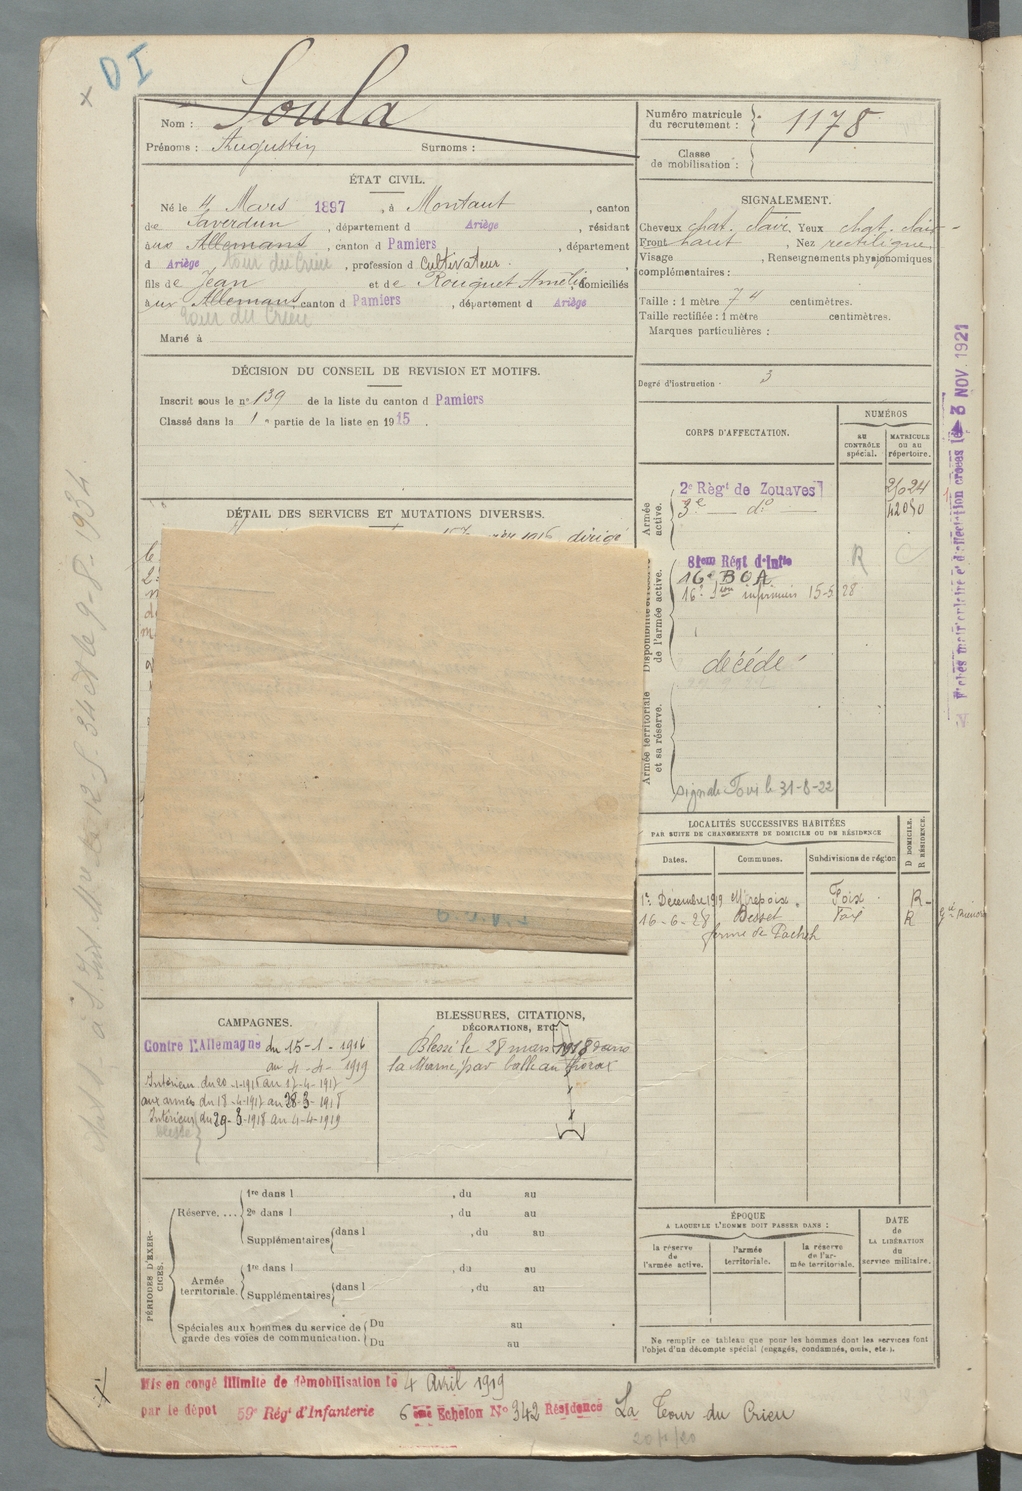 DI
Nom : Soula
Prénoms : Augustin Surnoms :
Numéro matricule du recrutement : 1178
Classe de mobilisation :
ÉTAT CIVIL.
Né le 4 Mars 1897, à Montaut, canton
de Saverdun, département d Ariège, résidant
aux Allemans, canton d Pamiers, département
d Ariège La Tour du Crieu, profession d cultivateur.
fils de Jean et de Rouquet Amélie, domiciliés
aux Allemans, canton d Pamiers, département d Ariège
Tour du Crieu
Marié à
SIGNALEMENT.
Cheveux chat. clair. Yeux chat. clair
Front haut, Nez rectiligne
Visage, Renseignements physionomiques
complémentaires :
Taille : 1 mètre 74 centimètres.
Taille rectifiée : 1 mètre centimètres.
Marques particulières :
Degré d'instruction : 3
DÉCISION DU CONSEIL DE REVISION ET MOTIFS.
Inscrit sous le n° 139 de la liste du canton d Pamiers
Classé dans la 1e partie de la liste en 1915.
DÉTAIL DES SERVICES ET MUTATIONS DIVERSES.
1916 dirigé
CORPS D'AFFECTATION.
NUMÉROS
AU CONTRÔLE spécial.
MATRICULE OU AU répertoire.
Armée active.
2e Régt de Zouaves 21024
3e — do — 42050
Disponibilité et réserve de l'armée active.
81em Régt d'Infie R
16e BOA
16e Son infirmiers 15-5 28
décédé
Armée territoriale et sa réserve.
signalé Foix le 31-8-22
Fiches matriculaire et d'affection créées le 3 NOV. 1921
LOCALITÉS SUCCESSIVES HABITÉES
PAR SUITE DE CHANGEMENTS DE DOMICILE OU DE RÉSIDENCE
Dates. Communes. Subdivisions de région
D DOMICILE. R RÉSIDENCE.
1er Décembre 1919 Mirepoix. Foix. R
16-6-28 Besset Foix R
ferme de
CAMPAGNES.
Contre l'Allemagne du 15-1-1916
au 4-4-1919
Intérieur du 20-1-1916 au 17-4-1917
aux armées du 18-4-1917 au 28-3-1918
Intérieur du 29-3-1918 au 4-4-1919
blessé
BLESSURES, CITATIONS,
DÉCORATIONS, ETC.
Blessé le 28 mars 1918 dans
la Marne, par balle au thorax
PÉRIODES D'EXERCICES.
Réserve. ... 1re dans l , du au
2e dans l , du au
Supplémentaires dans l , du au
Armée territoriale. 1re dans l , du au
Supplémentaires dans l , du au
Spéciales aux hommes du service de garde des voies de communication. Du au
Du au
ÉPOQUE
A LAQUELLE L'HOMME DOIT PASSER DANS :
la réserve de l'armée active.
l'armée territoriale.
la réserve de l'armée territoriale.
DATE de LA LIBÉRATION du service militaire.
Ne remplir ce tableau que pour les hommes dont les services font
l'objet d'un décompte spécial (engagés, condamnés, omis, etc.).
Mis en congé illimité de démobilisation le 4 Avril 1919
par le dépôt 59e Régt d'Infanterie 6eme Echelon No 342 Résidence La Tour du Crieu